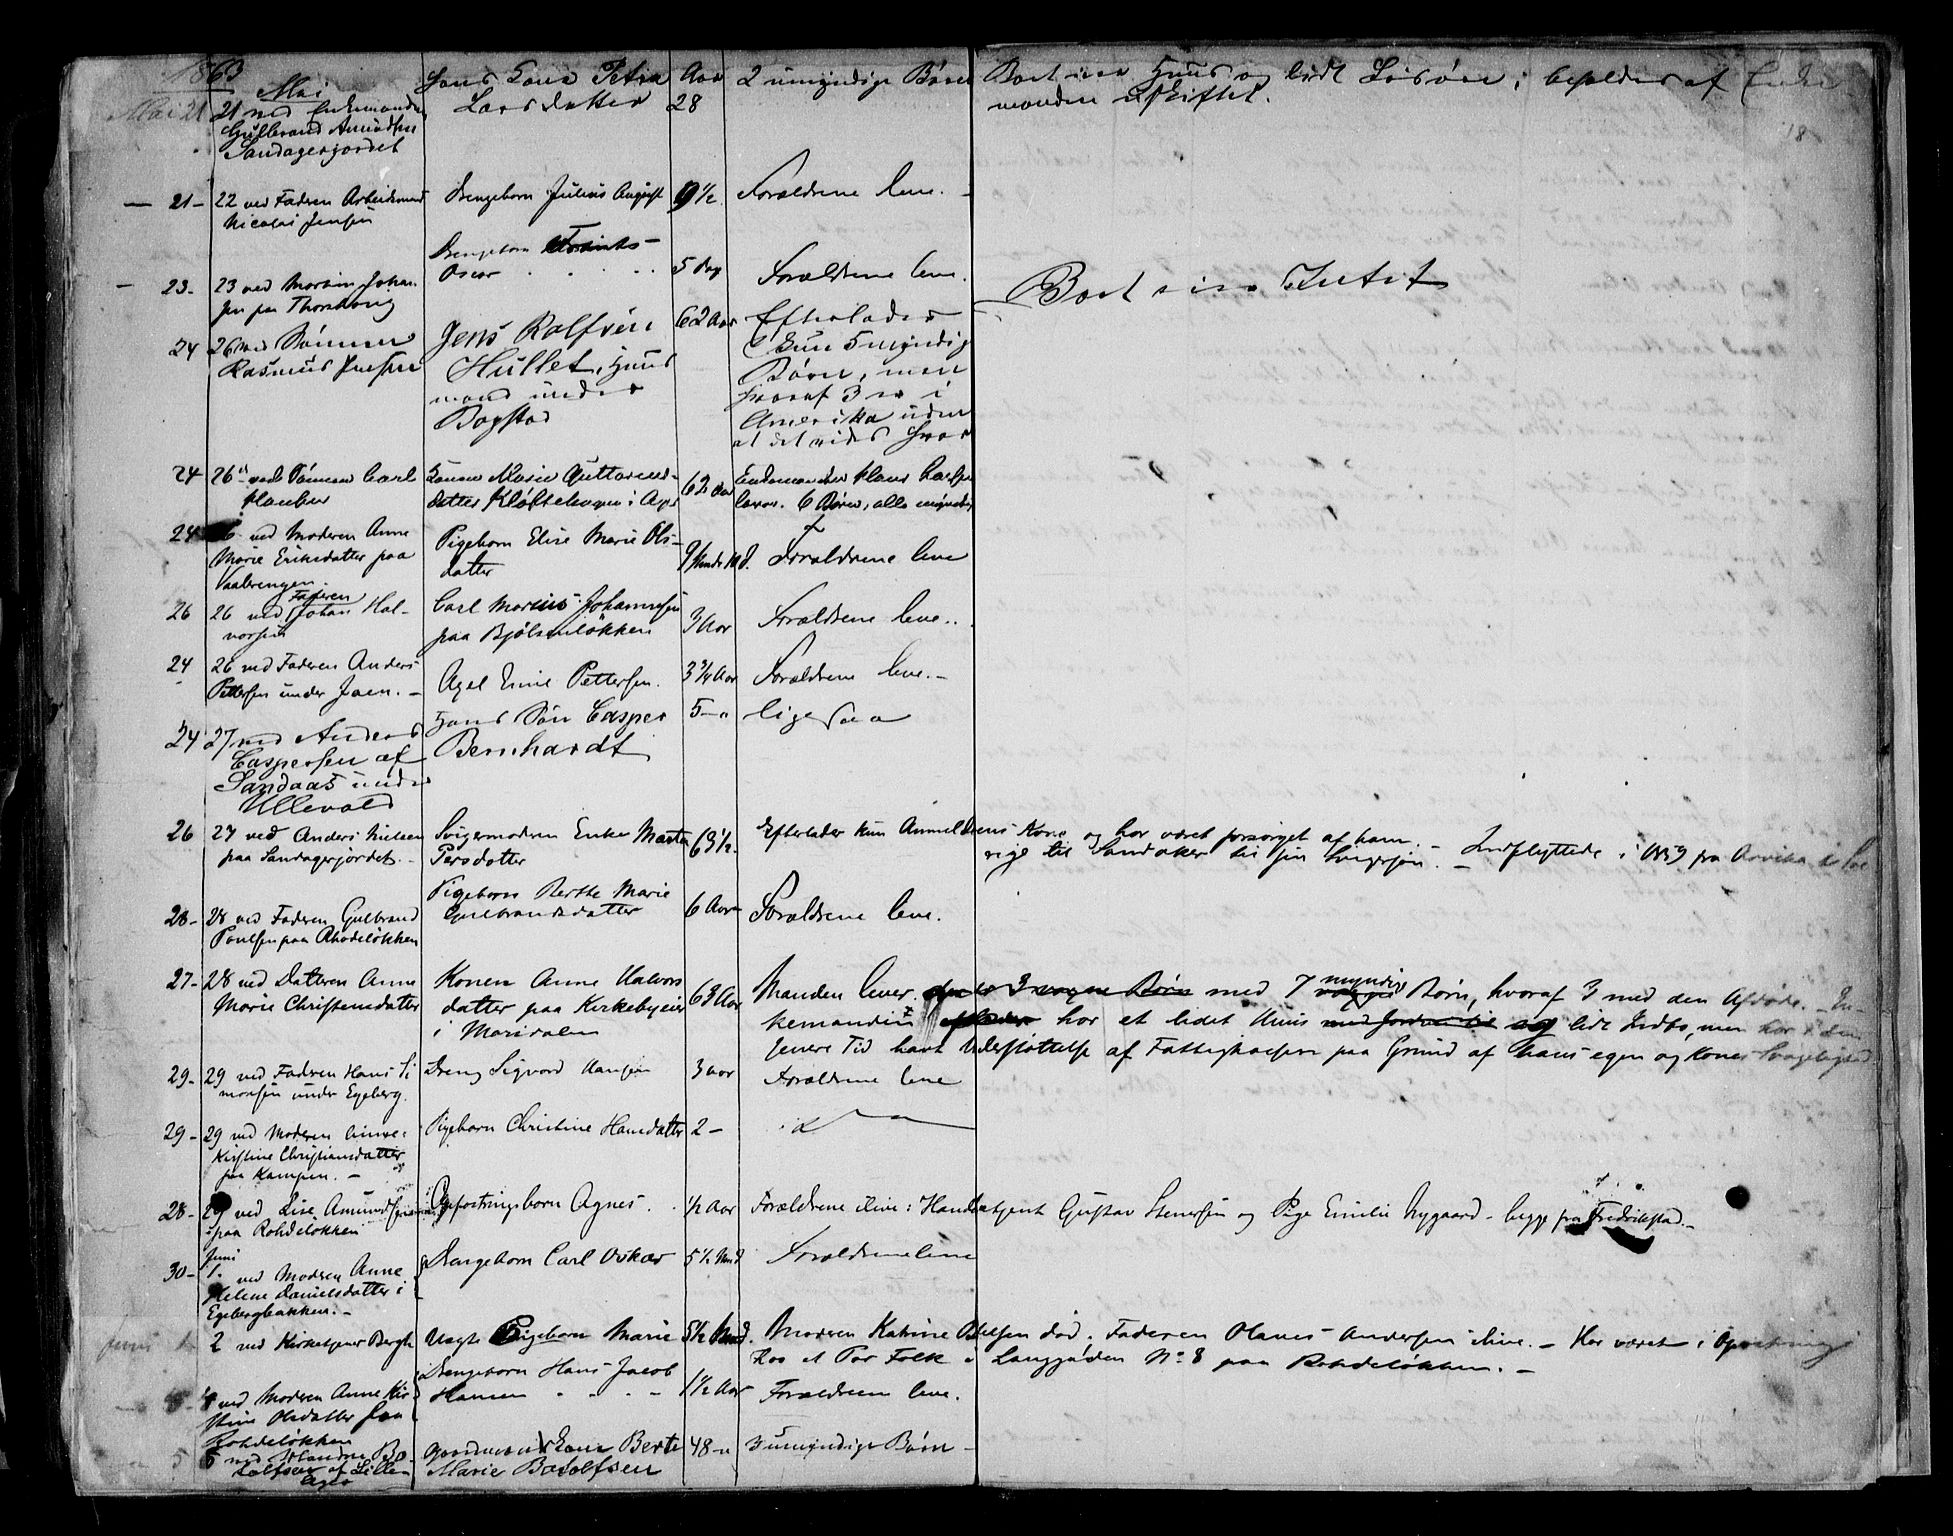 1863
Mai
Mai 21
21 ved Enkemanden
Gulbrand Amundsen
Sandagerjordet
hans Kone Petra
Larsdatter
Aar
28
2 umyndige Børn
Boet
Huus og lidt Løsøre; beholdes af Enke
manden uskiftet.
18
— 21 -
22 ved Faderen Arbeidsmand
Nicolai Jensen
Drengebarn Julius August
9 1/2
Forældrene leve. -
- 23 -
23 ved Morten Johan-
sen paa Thorshoug
Drengebarn
Oscar
5 Dage
Forældrene leve.
24
26 ved Sønnen
Rasmus Jensen
Jens Rolfsen
Hullet, Huus
mand under
Bogstad
62 Aar
Efterlader
kun 5 myndig
Børn, men
hvoraf 3 er i
Amerika uden
at det vides hvor
Boet eier Intet
24
26 ved Sønnen Carl
Klausen
Konen Marie Guttorms-
datter Kløftehagen i Ager
62 Aar
Enkemanden Klaus Carlsen
lever. 6 Børn, alle myndige
24
26 ved Moderen Anne
Marie Eriksdatter paa
Vaalerengen.
Pigebarn Elise Marie Ols-
datter
9 Maaneder 10 d.
Forældrene leve
26
Faderen
26 ved Johan Hal-
vorsen
Carl Marius Johannesen
paa Bjølsenløkken
3 Aar
Forældrene leve..
24
26 ved Faderen Anders
Pettersen under Jaen. -
Axel Emil Pettersen.
3 3/4 Aar
Forældrene leve. -
24
27 ved Anders
Caspersen af
Sandaas under
Ullevold
Hans Søn Casper
Bernhardt
5 - "
ligesaa
26
27 ved Anders Nielsen
paa Sandagerjordet. -
Svigermoderen Enke Marta
Persdatter
69 1/2.
Efterlader kun Anmelderens Kone og har været forsørget af ham. - Indflyttede i 1859 fra Arvika i Sve
rige til Sandaker til sin Svigersøn. -
28 -
28 ved Faderen Gulbrand
Poulsen paa Rhodeløkken
Pigebarn Berthe Marie
Gulbrandsdatter
6 Aar
Forældrene leve.
27 -
28 ved Datteren Anne
Marie Christensdatter
Konen Anne Halvors
datter paa Kirkebyeier
i Maridalen
63 Aar
Manden lever med 7 myndige Børn, hvoraf 3 med den Afdøde. - En-
kemanden har et lidet Huus og lidt Indbo, men har i den
senere Tid havt Understøttelse af Fattigkassen paa Grund af hans egen og Kones Svagelighed
29 -
29 ved Faderen Hans Si
monsen under Egeberg.
Dreng Sigvard Hansen
3 aar
Forældrene leve
29 -
29 ved Moderen Anne
Kirstine Christiansdatter
paa Kampen. -
Pigebarn Christine Hansdatter
2 -
28 -
29 ved Lise Amundsen
paa Rohdeløkken
Opfostringsbarn Agnes.
1/2 Aar
Forældrene ilive: Handelsbetjent Gustav Stenersen og Pige Emilie Nygaard - begge fra Fredrikstad. -
30 -
Juni
1. ved Moderen Anne
Helene Danielsdatter i
Egebergbakken. -
Drengebarn Carl Oskar
5 1/2 Mnd
Forældrene leve
Juni 1
2 ved Kirketjener Bergh
Uægte Pigebarn Marie
5 1/2 Mnd.
Moderen Katrine Olsen død. Faderen Olaves Andersen ilive. - Har været i Opfostring
hos et Par Folk i Langgaden No 8 paa Rohdeløkken. -
4 ved Moderen Anne Kir-
stine Olsdatter paa
Rohdeløkken
Drengebarn Hans Jacob
Hansen
1 1/2 Aar
Forældrene leve.
5
5 ved Manden Bo-
tolfsen af Lille
Ager
Gaardmands Kone Berte
Marie Botolfsen
48 - "
3 umyndige Børn -